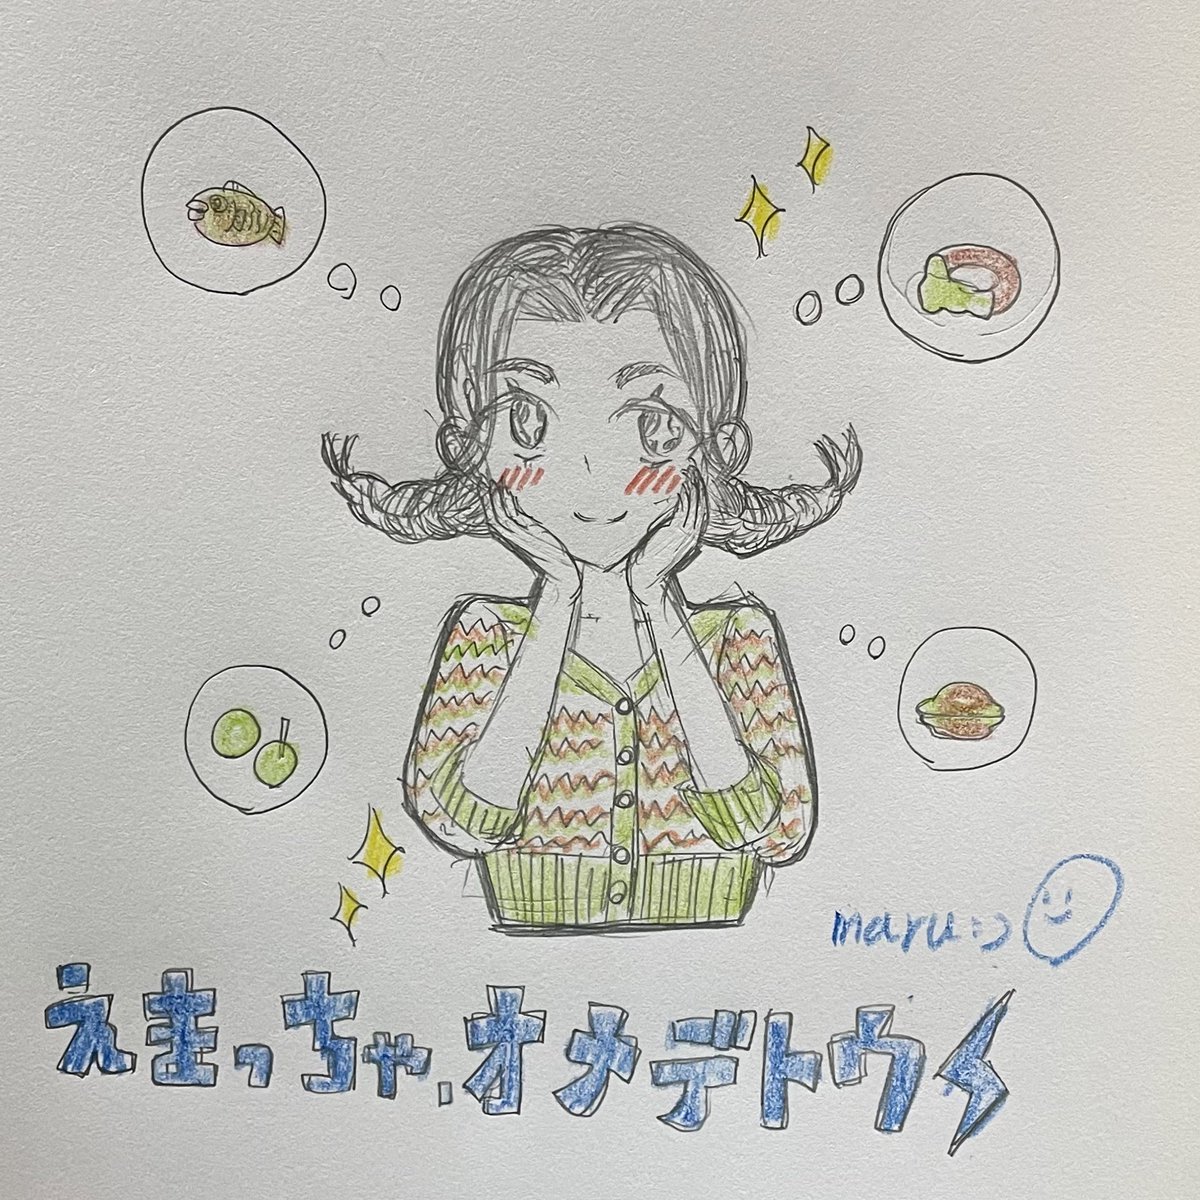 maru:)
えまっちゃ.オメデトウ